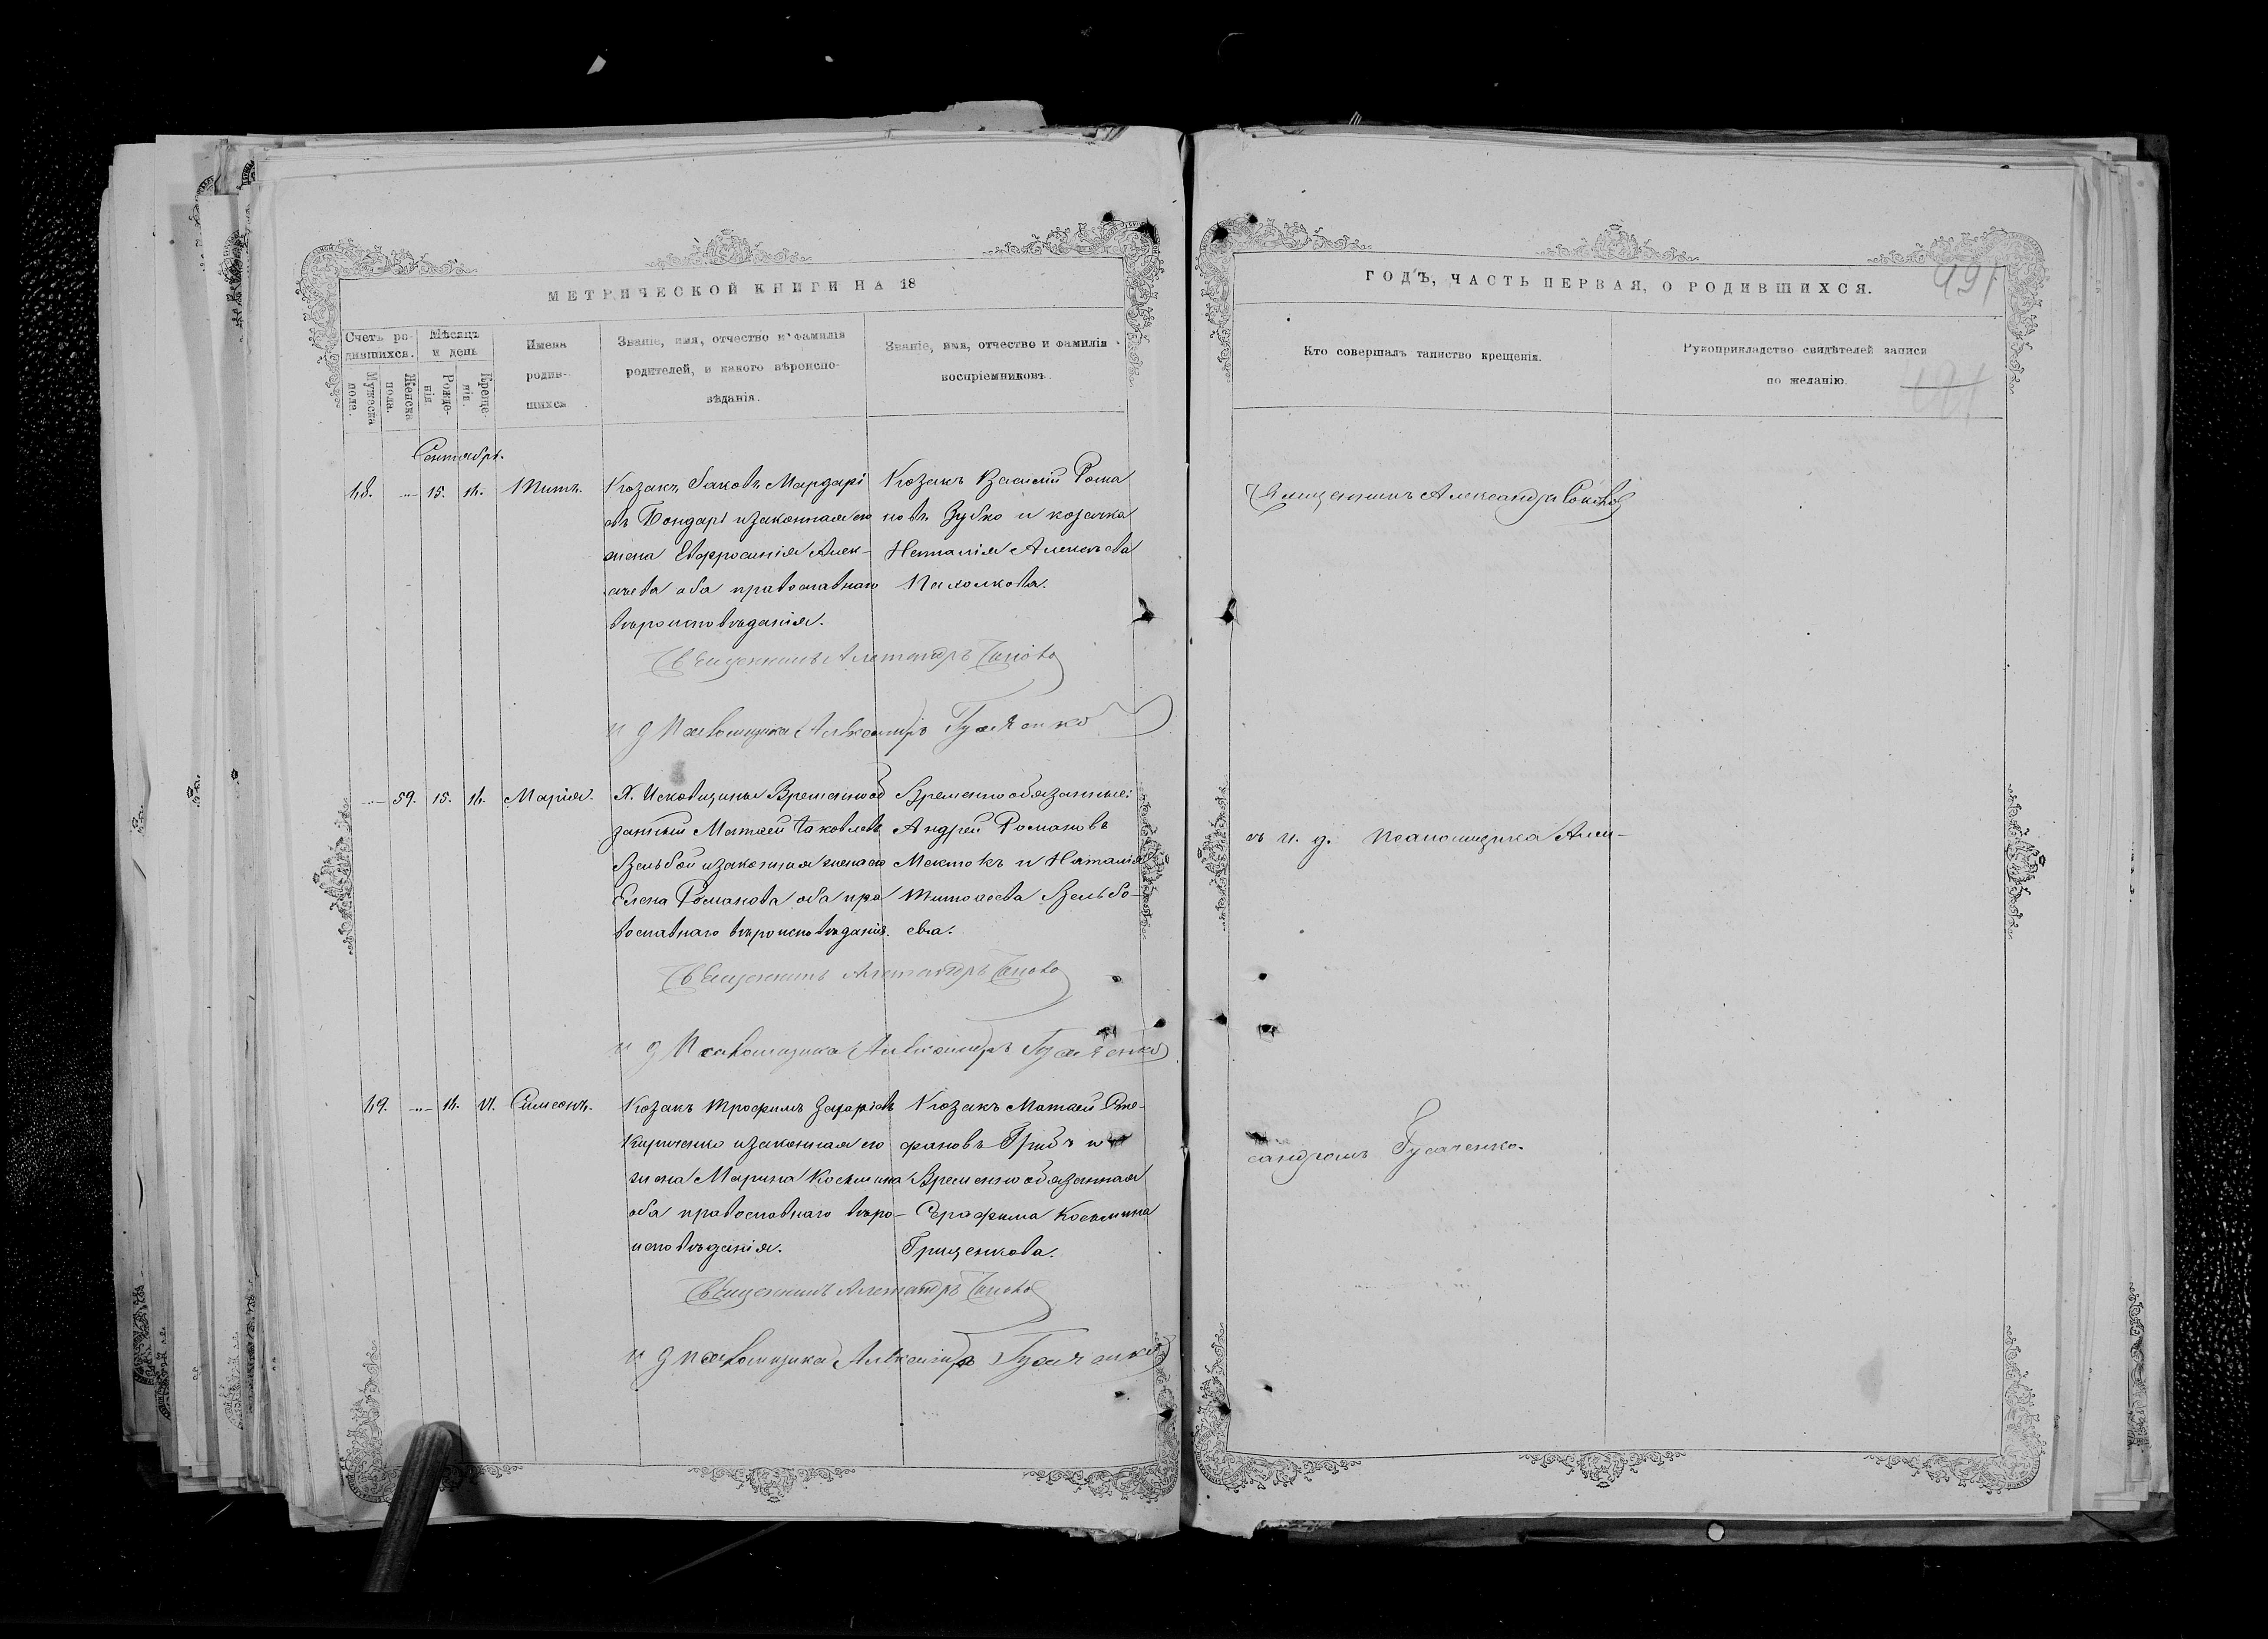 МЕТРИЧЕСКОЙ КНИГИ НА 18
Счетъ ро-
дившихся.
Мужеска
пола.
Женска
пола.
Мѣсяцъ
и день
Рожде-
нія
Креще-
нія.
Имена
родив-
шихся
Званіе, имя, отчество и фамилія
родителей, и какого вѣроиспо-
вѣданія.
Званіе, имя, отчество и фамилія
воспріемниковъ.
Сентябрь.
15.
Титъ.
Козакъ Іаковъ Мардарі
евъ Бондарь и законная его
жена Евфросинія Алек-
сѣева оба православнаго
вѣроисповѣданія.
Козакъ Василій Рома
новъ Зубко и козачка
Наталія Алексѣева
Пахолкова.
Священникъ Александръ
и д Псаломщика Александръ Гусаченко
59. 15. Марія.
Х. Исковщины Временнообя
занный Матѳей Іаковлевъ
и законная жена его
Елена Романова оба пра
вославнаго вѣроисповѣданія.
Временнообязанные:
Андрей Романовъ
и Наталія
Священникъ Александръ
и д Псаломщика Александръ Гусаченко
Симеонъ.
Козакъ Трофимъ Захаріевъ
Кириченко и законная его
жена Марина Косьмина
оба православнаго вѣро-
исповѣданія.
Козакъ Матѳей Сте-
фановъ Грибъ и
Временнообязанная
Серафима Косьмина
Грищенкова.
Священникъ Александръ
и д Псаломщика Александръ Гусаченко
ГОДЪ, ЧАСТЬ ПЕРВАЯ, О РОДИВШИХСЯ.
991
Кто совершалъ таинство крещенія.
Рукоприкладство свидѣтелей записи
по желанію.
Священникъ Александръ
съ и. д. псаломщика Алек-
сандромъ Гусаченко.